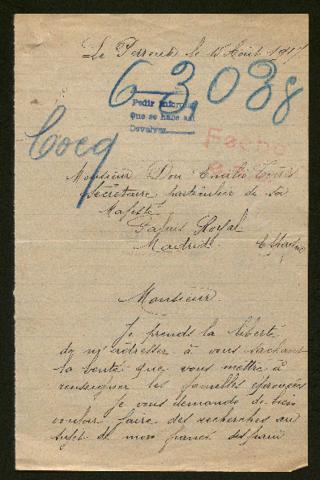 Le le 15 Août 1917
63,038
Pedir informes
que se halle así
Devolver
Fecho
Cocq
Monsieur Don Emilio Torres
Secrétaire particulier de Sa
Majesté
Palais Royal
Madrid. Espagne
Monsieur
Je prends la liberté
de m'adresser à vous sachant
la bonté que vous mettre à
renseigner les familles éprouvées
Je vous demande de bien
vouloir faire des recherches au
sujet de mon fiancé disparu